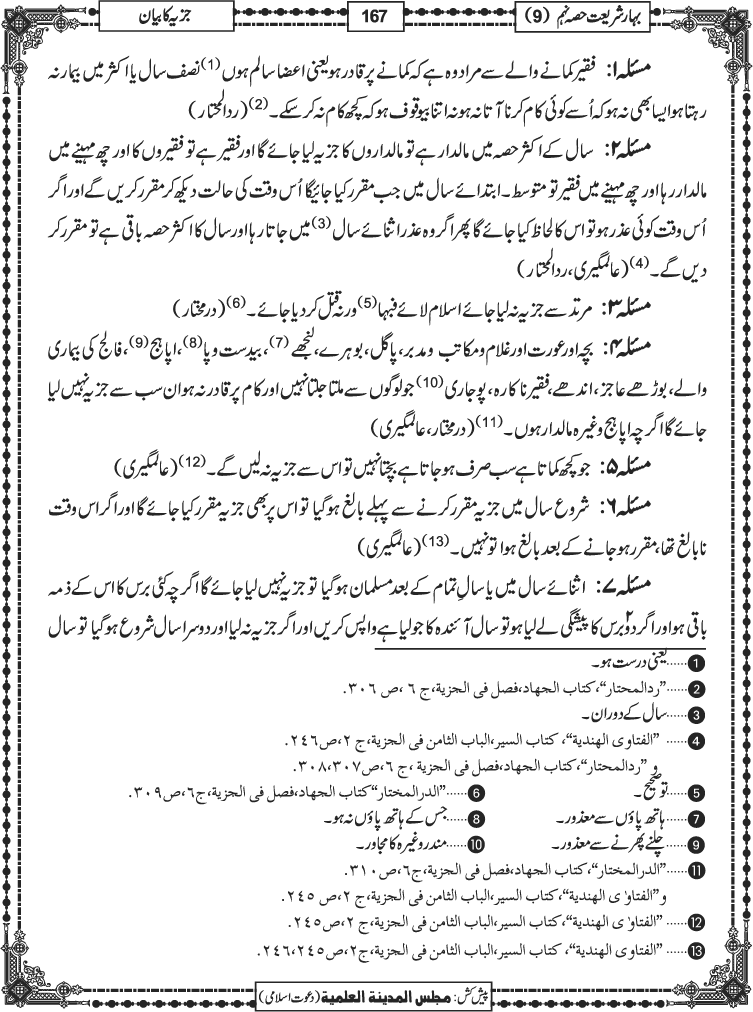 بہارِ شریعت حصہ نہم (9)
167
جزیہ کا بیان
مسئلہ ۱: فقیر کمانے والے سے مراد وہ ہے کہ کمانے پر قادر ہو یعنی اعضا سالم ہوں (1) نصف سال یا اکثر میں بیمار نہ
رہتا ہو ایسا بھی نہ ہو کہ اُسے کوئی کام کرنا آتا نہ ہو نہ اتنا بیوقوف ہو کہ کچھ کام نہ کر سکے۔ (2) (ردالمحتار)
مسئلہ ۲: سال کے اکثر حصہ میں مالدار ہے تو مالداروں کا جزیہ لیا جائے گا اور فقیر ہے تو فقیروں کا اور چھ مہینے میں
مالدار رہا اور چھ مہینے میں فقیر تو متوسط۔ ابتدائے سال میں جب مقرر کیا جائیگا اُس وقت کی حالت دیکھ کر مقرر کریں گے اور اگر
اُس وقت کوئی عذر ہو تو اس کا لحاظ کیا جائے گا پھر اگر وہ عذر اثنائے سال (3) میں جاتا رہا اور سال کا اکثر حصہ باقی ہے تو مقرر کر
دیں گے۔ (4) (عالمگیری، ردالمحتار)
مسئلہ ۳: مرتد سے جزیہ نہ لیا جائے اسلام لائے فبہا (5) ورنہ قتل کر دیا جائے۔ (6) (درمختار)
مسئلہ ۴: بچہ اور عورت اور غلام و مکاتب و مدبر، پاگل، بوہرے، لنجھے (7)، بیدست و پا (8)، اپاہج (9)، فالج کی بیماری
والے، بوڑھے عاجز، اندھے، فقیر ناکارہ، پوجاری (10) جو لوگوں سے ملتا جلتا نہیں اور کام پر قادر نہ ہو ان سب سے جزیہ نہیں لیا
جائے گا اگرچہ اپاہج وغیرہ مالدار ہوں۔ (11) (درمختار، عالمگیری)
مسئلہ ۵: جو کچھ کماتا ہے سب صرف ہو جاتا ہے بچتا نہیں تو اس سے جزیہ نہ لیں گے۔ (12) (عالمگیری)
مسئلہ ۶: شروع سال میں جزیہ مقرر کرنے سے پہلے بالغ ہو گیا تو اس پر بھی جزیہ مقرر کیا جائے گا اور اگر اس وقت
نابالغ تھا، مقرر ہو جانے کے بعد بالغ ہوا تو نہیں۔ (13) (عالمگیری)
مسئلہ ۷: اثنائے سال میں یا سالِ تمام کے بعد مسلمان ہو گیا تو جزیہ نہیں لیا جائے گا اگرچہ کئی برس کا اس کے ذمہ
باقی ہو اور اگر دو۲ برس کا پیشگی لے لیا ہو تو سال آئندہ کا جو لیا ہے واپس کریں اور اگر جزیہ نہ لیا اور دوسرا سال شروع ہو گیا تو سال
1 ......یعنی درست ہو۔
2 ......"ردالمحتار"، کتاب الجهاد، فصل فی الجزیة، ج ۶، ص ۳۰۶.
3 ......سال کے دوران۔
4 ......"الفتاوی الهندیة"، کتاب السیر، الباب الثامن فی الجزیة، ج ۲، ص ۲۴۶.
و "ردالمحتار"، کتاب الجهاد، فصل فی الجزیة، ج ۶، ص ۳۰۷، ۳۰۸.
5 ......تو صحیح۔ 6 ......"الدرالمختار" کتاب الجهاد، فصل فی الجزیة، ج۶، ص ۳۰۹.
7 ......ہاتھ پاؤں سے معذور۔ 8 ......جس کے ہاتھ پاؤں نہ ہو۔
9 ......چلنے پھرنے سے معذور۔ 10 ......مندر وغیرہ کا مجاور۔
11 ......"الدرالمختار"، کتاب الجهاد، فصل فی الجزیة، ج۶، ص ۳۱۰.
و "الفتاوی الهندیة"، کتاب السیر، الباب الثامن فی الجزیة، ج ۲، ص ۲۴۵.
12 ......"الفتاوی الهندیة"، کتاب السیر، الباب الثامن فی الجزیة، ج ۲، ص ۲۴۵.
13 ......"الفتاوی الهندیة"، کتاب السیر، الباب الثامن فی الجزیة، ج۲، ص ۲۴۵، ۲۴۶.
پیش کش: مجلس المدینة العلمیة (دعوتِ اسلامی)